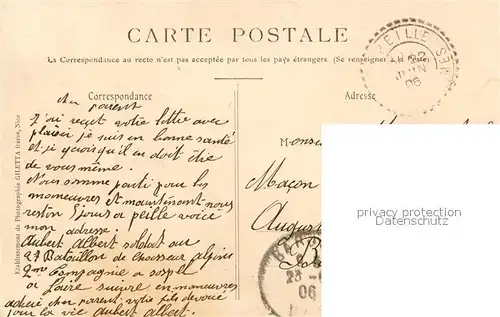 CARTE POSTALE
La Correspondance au recto n'est pas acceptée par tous les pays étrangers (Se renseigner à la Poste)
PEILLE
22
JUIN
06
Correspondance
Adresse
cher parent
j'ai reçut votre lettre avec
plaisir je suis en bonne santé
et je quoisqu'il en doit étre
de vous même.
Nous somme parti pour les
maneuvres et maintinont nous
reston 5 jours a peille voice
mon adresse:
Aubert Albert soldat au
27 Batouillon de chasseur alpins
2me Compagnie a sospel
a Loire suivre en maneuvres
adieu cher parent votre fils devoué
pour la vie aubert albert.
Monsieu
Maçon
August
B
23
06
Etablissement de Photographie GILETTA frères, Nice
property protection
watermark
Authentic-Subjects